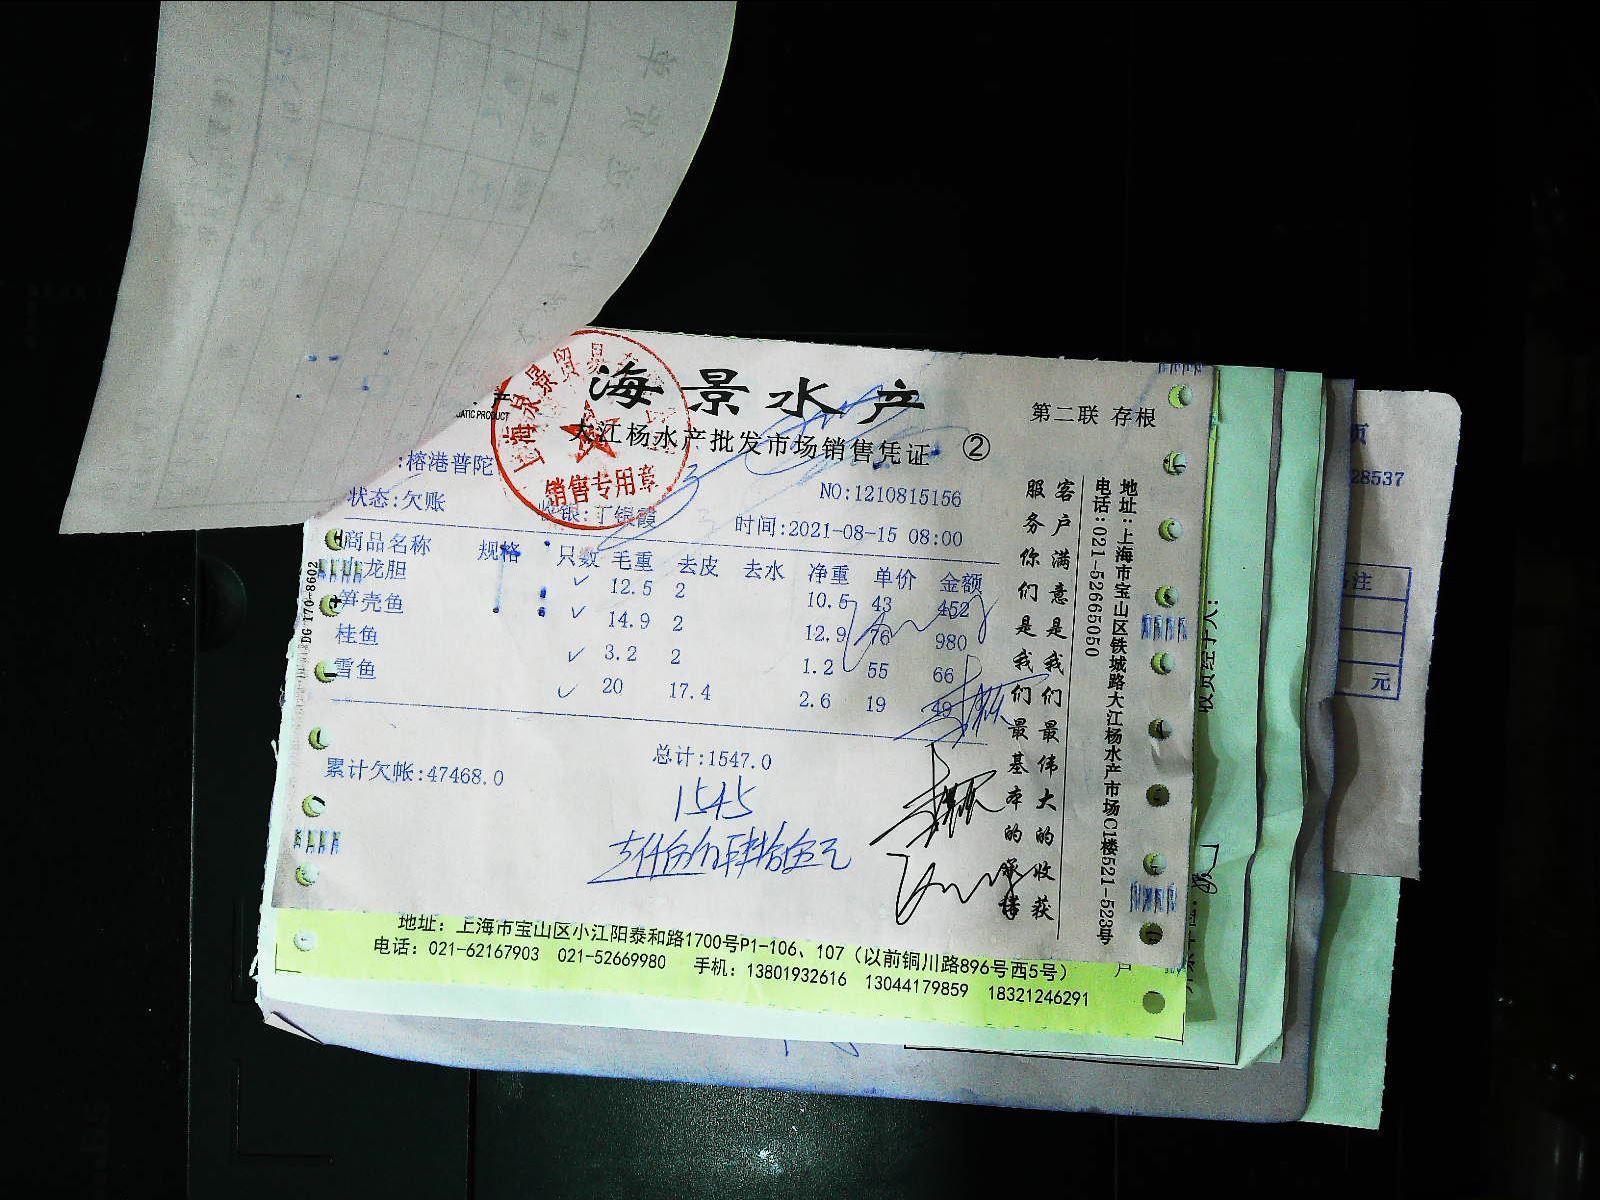 海景水产
第二联 存根
大江杨水产批发市场销售凭证 ②
UATIC PRODUCT
:榕港普陀
销售专用章
NO:1210815156
状态:欠账
银:丁银霞
时间:2021-08-15 08:00
商品名称 规格 只数 毛重 去皮 去水 净重 单价 金额
龙胆 12.5 2 10.5 43 452
笋壳鱼 14.9 2 12.9 76 980
桂鱼 3.2 2 1.2 55 66
雪鱼 20 17.4 2.6 19 49
总计:1547.0
累计欠帐:47468.0
1545
客户满意是我们最伟大的收获
服务你们是我们最基本的承诺
地址:上海市宝山区铁城路大江杨水产市场C1楼521-523号
电话:021-52665050
DG 170-8602
地址:上海市宝山区小江阳泰和路1700号P1-106、107(以前铜川路896号西5号)
电话:021-62167903 021-52669980 手机:13801932616 13044179859 18321246291
28537
注
元